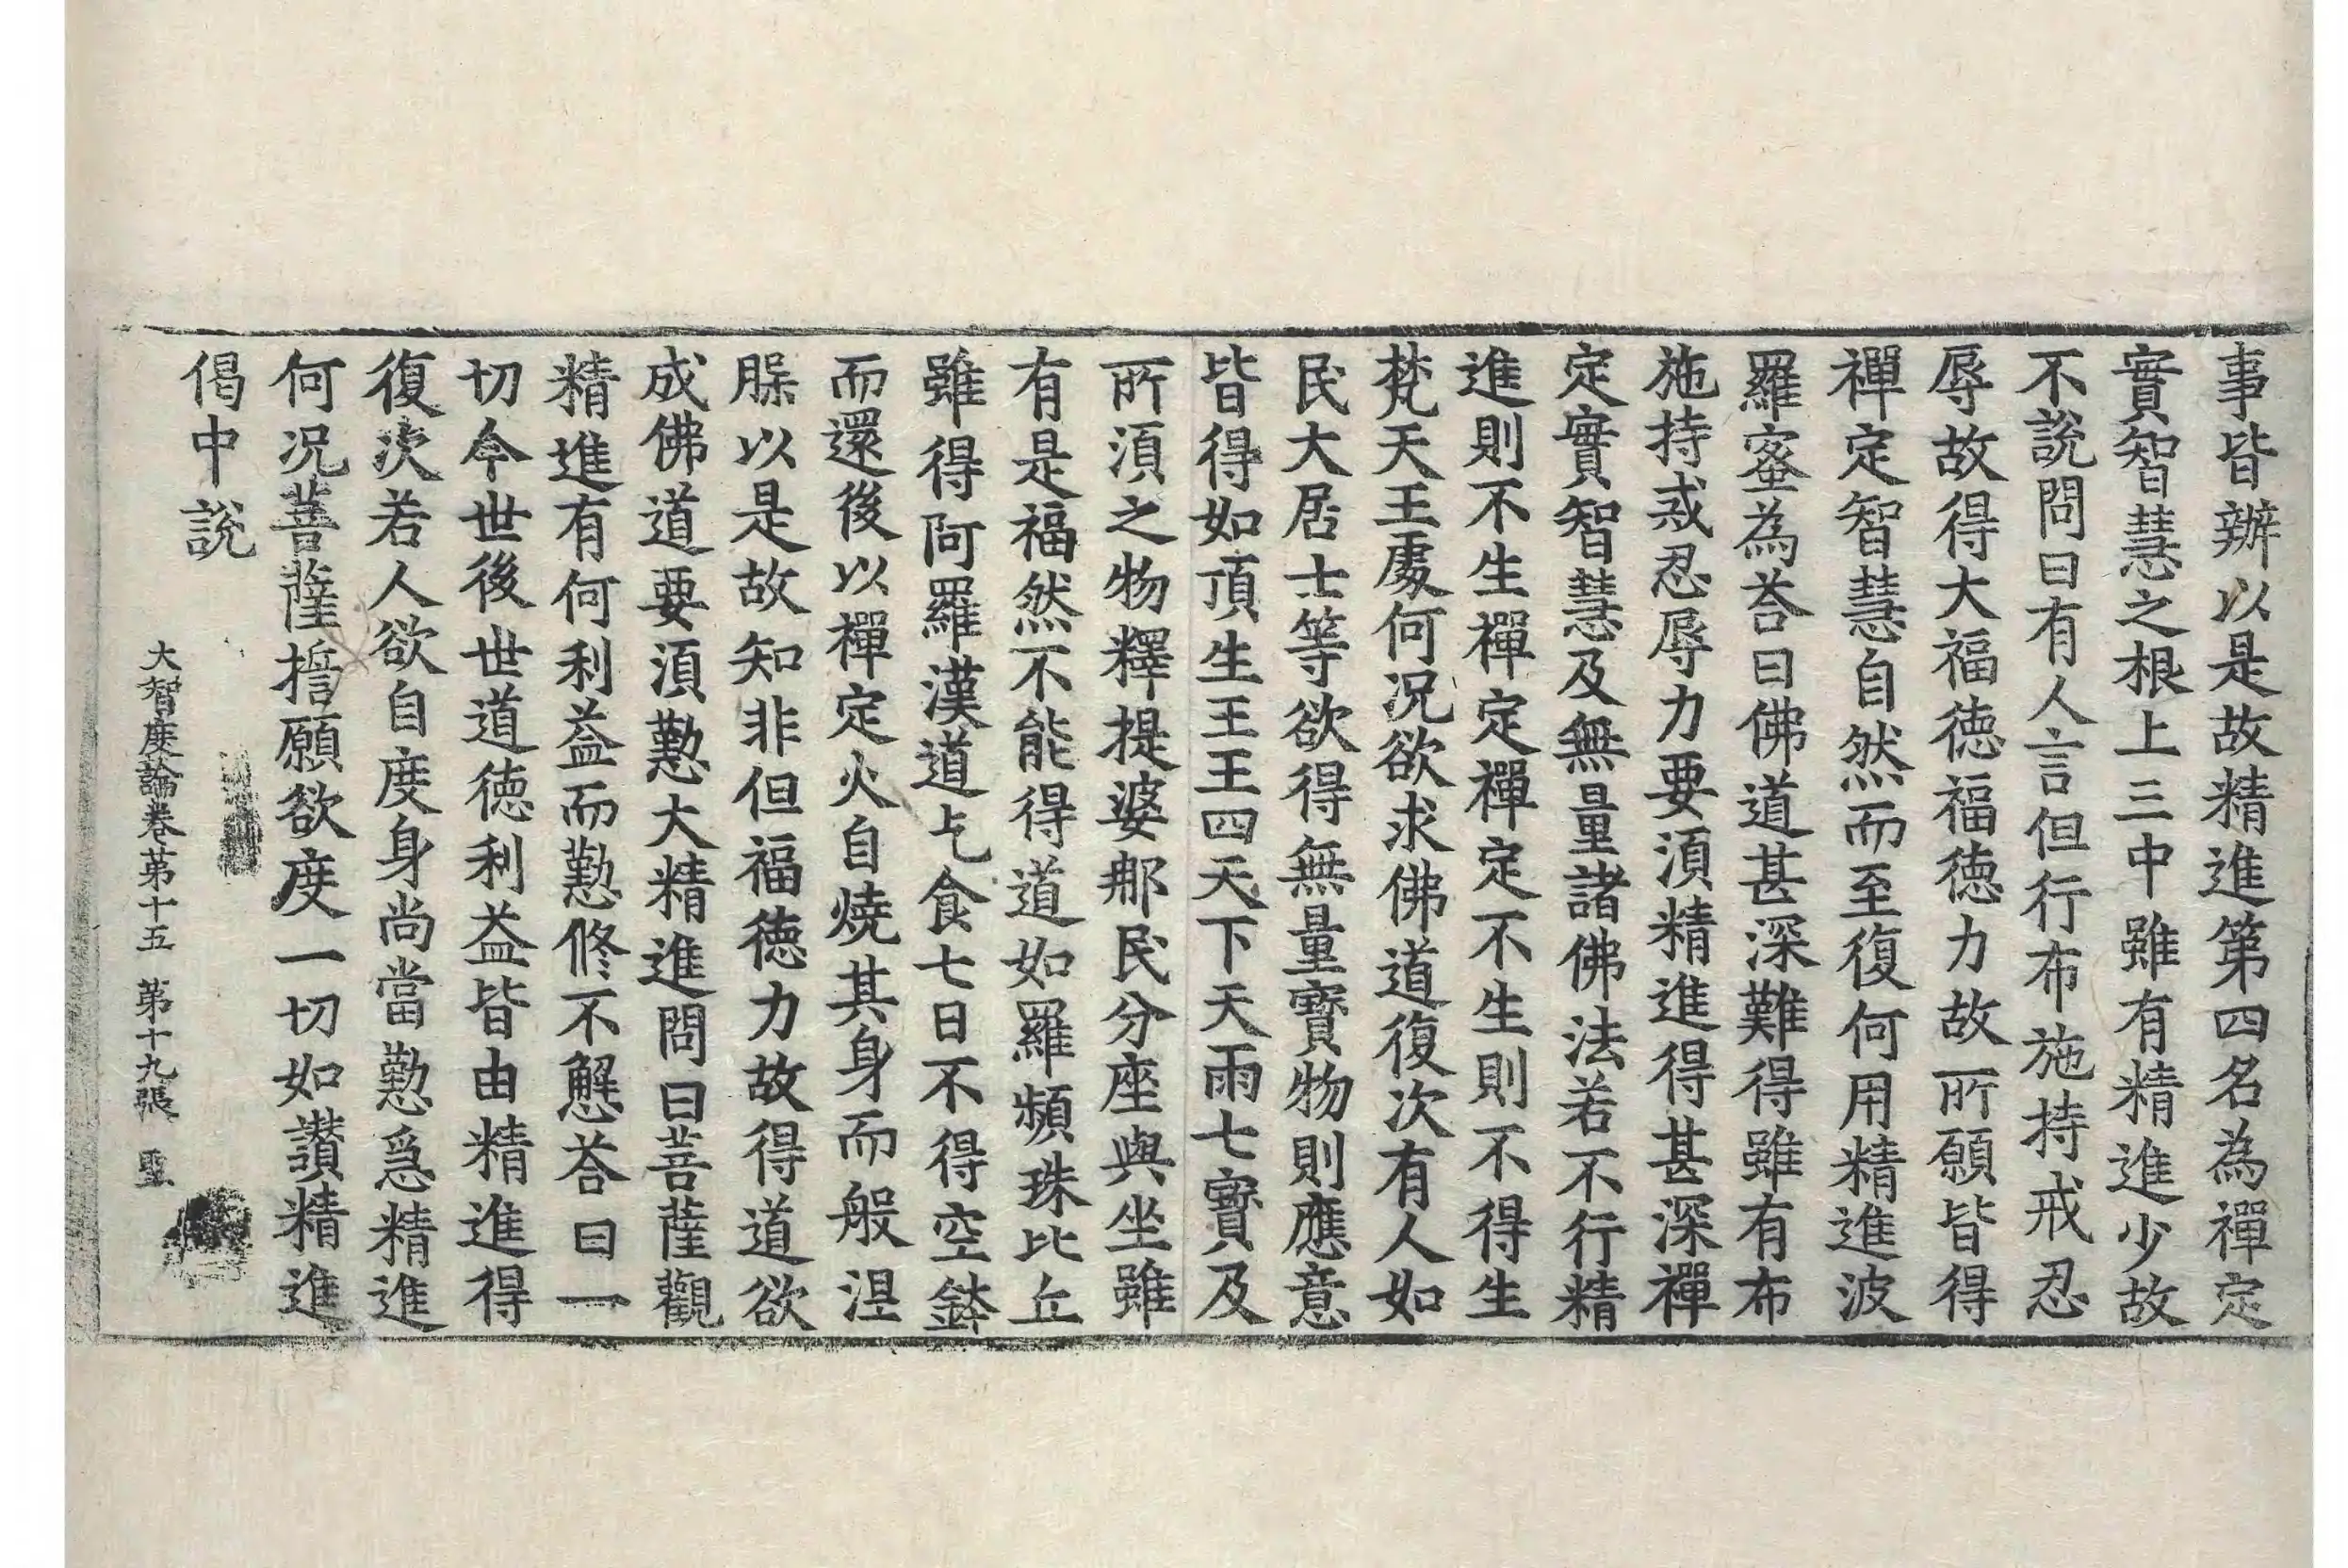 事皆辦以是故精進第四名為禪定
實智慧之根上三中雖有精進少故
不說問曰有人言但行布施持戒忍
辱故得大福德福德力故所願皆得
禪定智慧自然而至復何用精進波
羅蜜為荅曰佛道甚深難得雖有布
施持戒忍辱力要須精進得甚深禪
定實智慧及無量諸佛法若不行精
進則不生禪定禪定不生則不得生
梵天王處何況欲求佛道復次有人如
民大居士等欲得無量寶物則應意
皆得如頂生王王四天下天雨七寶及
所須之物釋提婆那民分座與坐雖
有是福然不能得道如羅頻珠比丘
雖得阿羅漢道乞食七日不得空鉢
而還後以禪定火自燒其身而般涅
𦢊以是故知非但福德力故得道欲
成佛道要須懃大精進問曰菩薩觀
精進有何利益而懃修不懈荅曰一
切今世後世道德利益皆由精進得
復次若人欲自度身尚當懃爲精進
何況菩薩誓願欲度一切如讚精進
偈中說
大智度論卷第十五 第十九張 聖